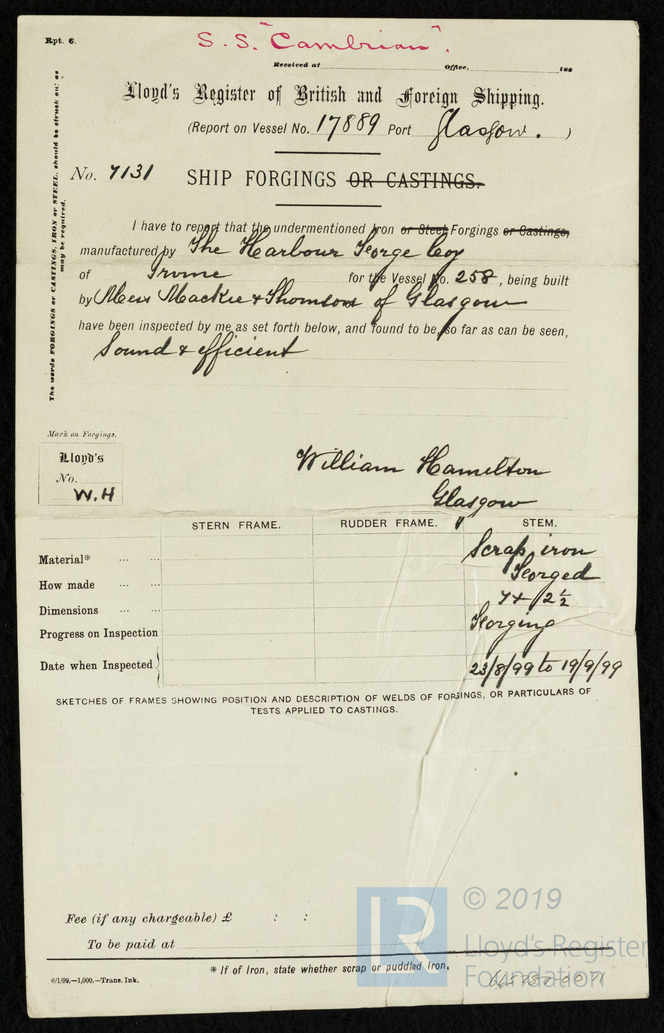 Rpt. 6.
S.S. "Cambrian".
Received at Office, 188
Lloyd's Register of British and Foreign Shipping.
(Report on Vessel No. 17889 Port Glasgow. )
No. 7131 SHIP FORGINGS OR CASTINGS.
The words FORGINGS or CASTINGS, IRON or STEEL, should be struck out as
may be required.
I have to report that the undermentioned Iron or Steel Forgings or Castings,
manufactured by The Harbour Forge Coy
of Irvine for the Vessel No. 258, being built
by Mess Mackie & Thomson of Glasgow
have been inspected by me as set forth below, and found to be, so far as can be seen,
Sound & efficient
Mark on Forgings.
Lloyd's
No.
W.H
William Hamelton
Glasgow
STERN FRAME. RUDDER FRAME. STEM.
Material* ... ... Scrap iron
How made ... ... Forged
Dimensions ... ... 7 x 2½
Progress on Inspection Forging
Date when Inspected 23/8/99 to 19/9/99
SKETCHES OF FRAMES SHOWING POSITION AND DESCRIPTION OF WELDS OF FORGINGS, OR PARTICULARS OF
TESTS APPLIED TO CASTINGS.
Fee (if any chargeable) £ : :
To be paid at
* If of Iron, state whether scrap or puddled Iron.
6/1/99.—1,000.—Trans. Ink.
LR
© 2019
Lloyd's Register
Foundation